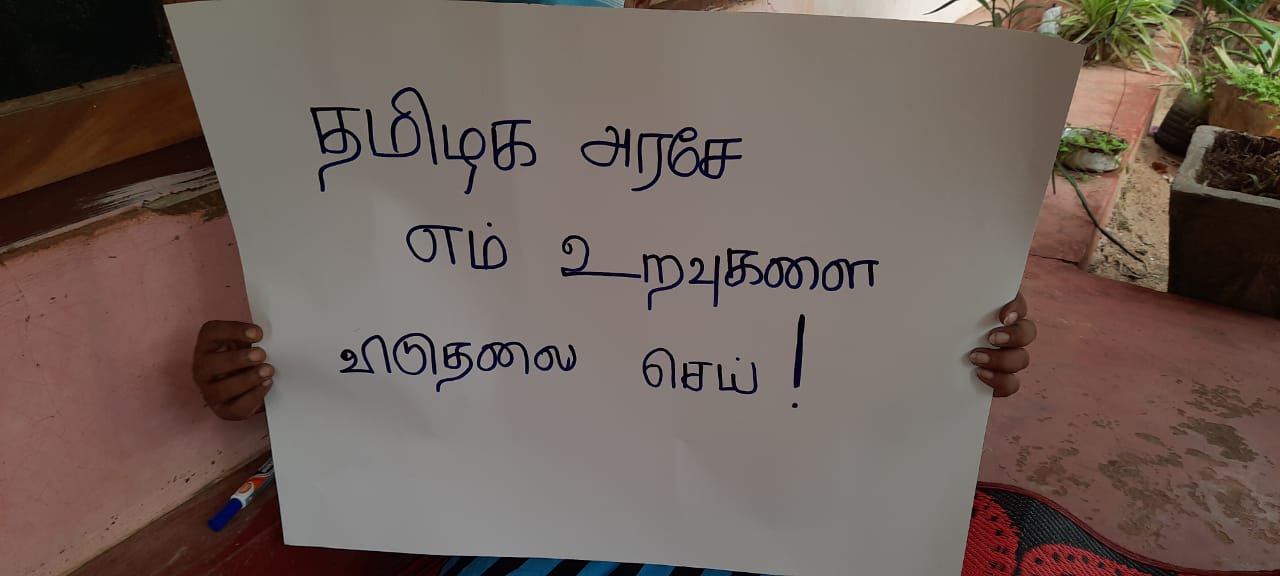 தமிழக அரசே
எம் உறவுகளை
விடுதலை செய் !